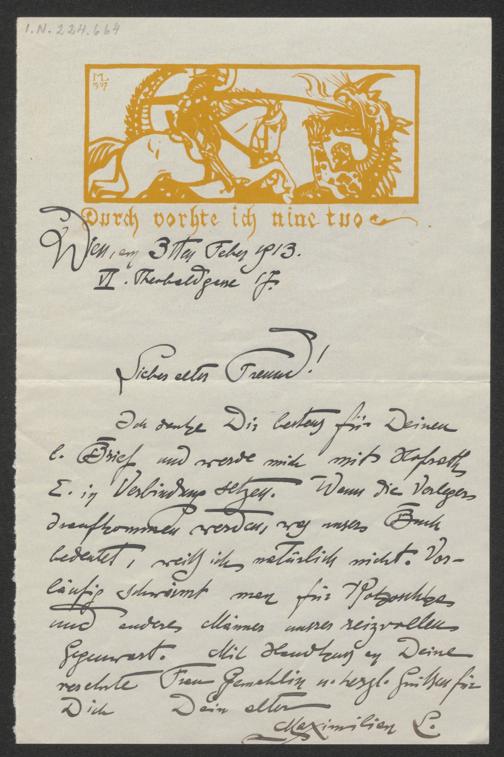 I.N. 224.664
M.
Durch vorhte ich nine tuo
Wien, am 3ten Feber 1913.
VI. Theobaldgasse 17.
Lieber alter Freund!
Ich danke Dir bestens für Deinen
l. Brief und werde mich mit Hofrath
E. in Verbindung setzen. Wann die Verleger
draufkommen werden, was unser Buch
bedeutet, weiß ich natürlich nicht. Vor-
läufig schwärmt man für
und andere Männer unserer reizvollen
Gegenwart. Mit Handkuss an Deine
verehrte Frau Gemahlin u. herzl. Grüßen für
Dich Dein alter
Maximilian L.